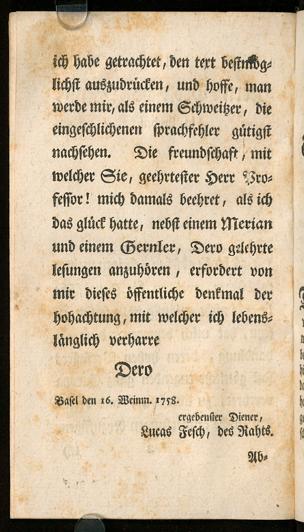 ich habe getrachtet, den text bestmög-
lichst auszudrücken, und hoffe, man
werde mir, als einem Schweitzer, die
eingeschlichenen sprachfehler gütigst
nachsehen. Die freundschaft, mit
welcher Sie, geehrtester Herr Pro-
fessor! mich damals beehret, als ich
das glück hatte, nebst einem Merian
und einem Gernler, Dero gelehrte
lesungen anzuhören, erfordert von
mir dieses öffentliche denkmal der
hohachtung, mit welcher ich lebens-
länglich verharre
Dero
Basel den 16. Weinm. 1758.
ergebenster Diener,
Lucas Fesch, des Rahts.
Ab-